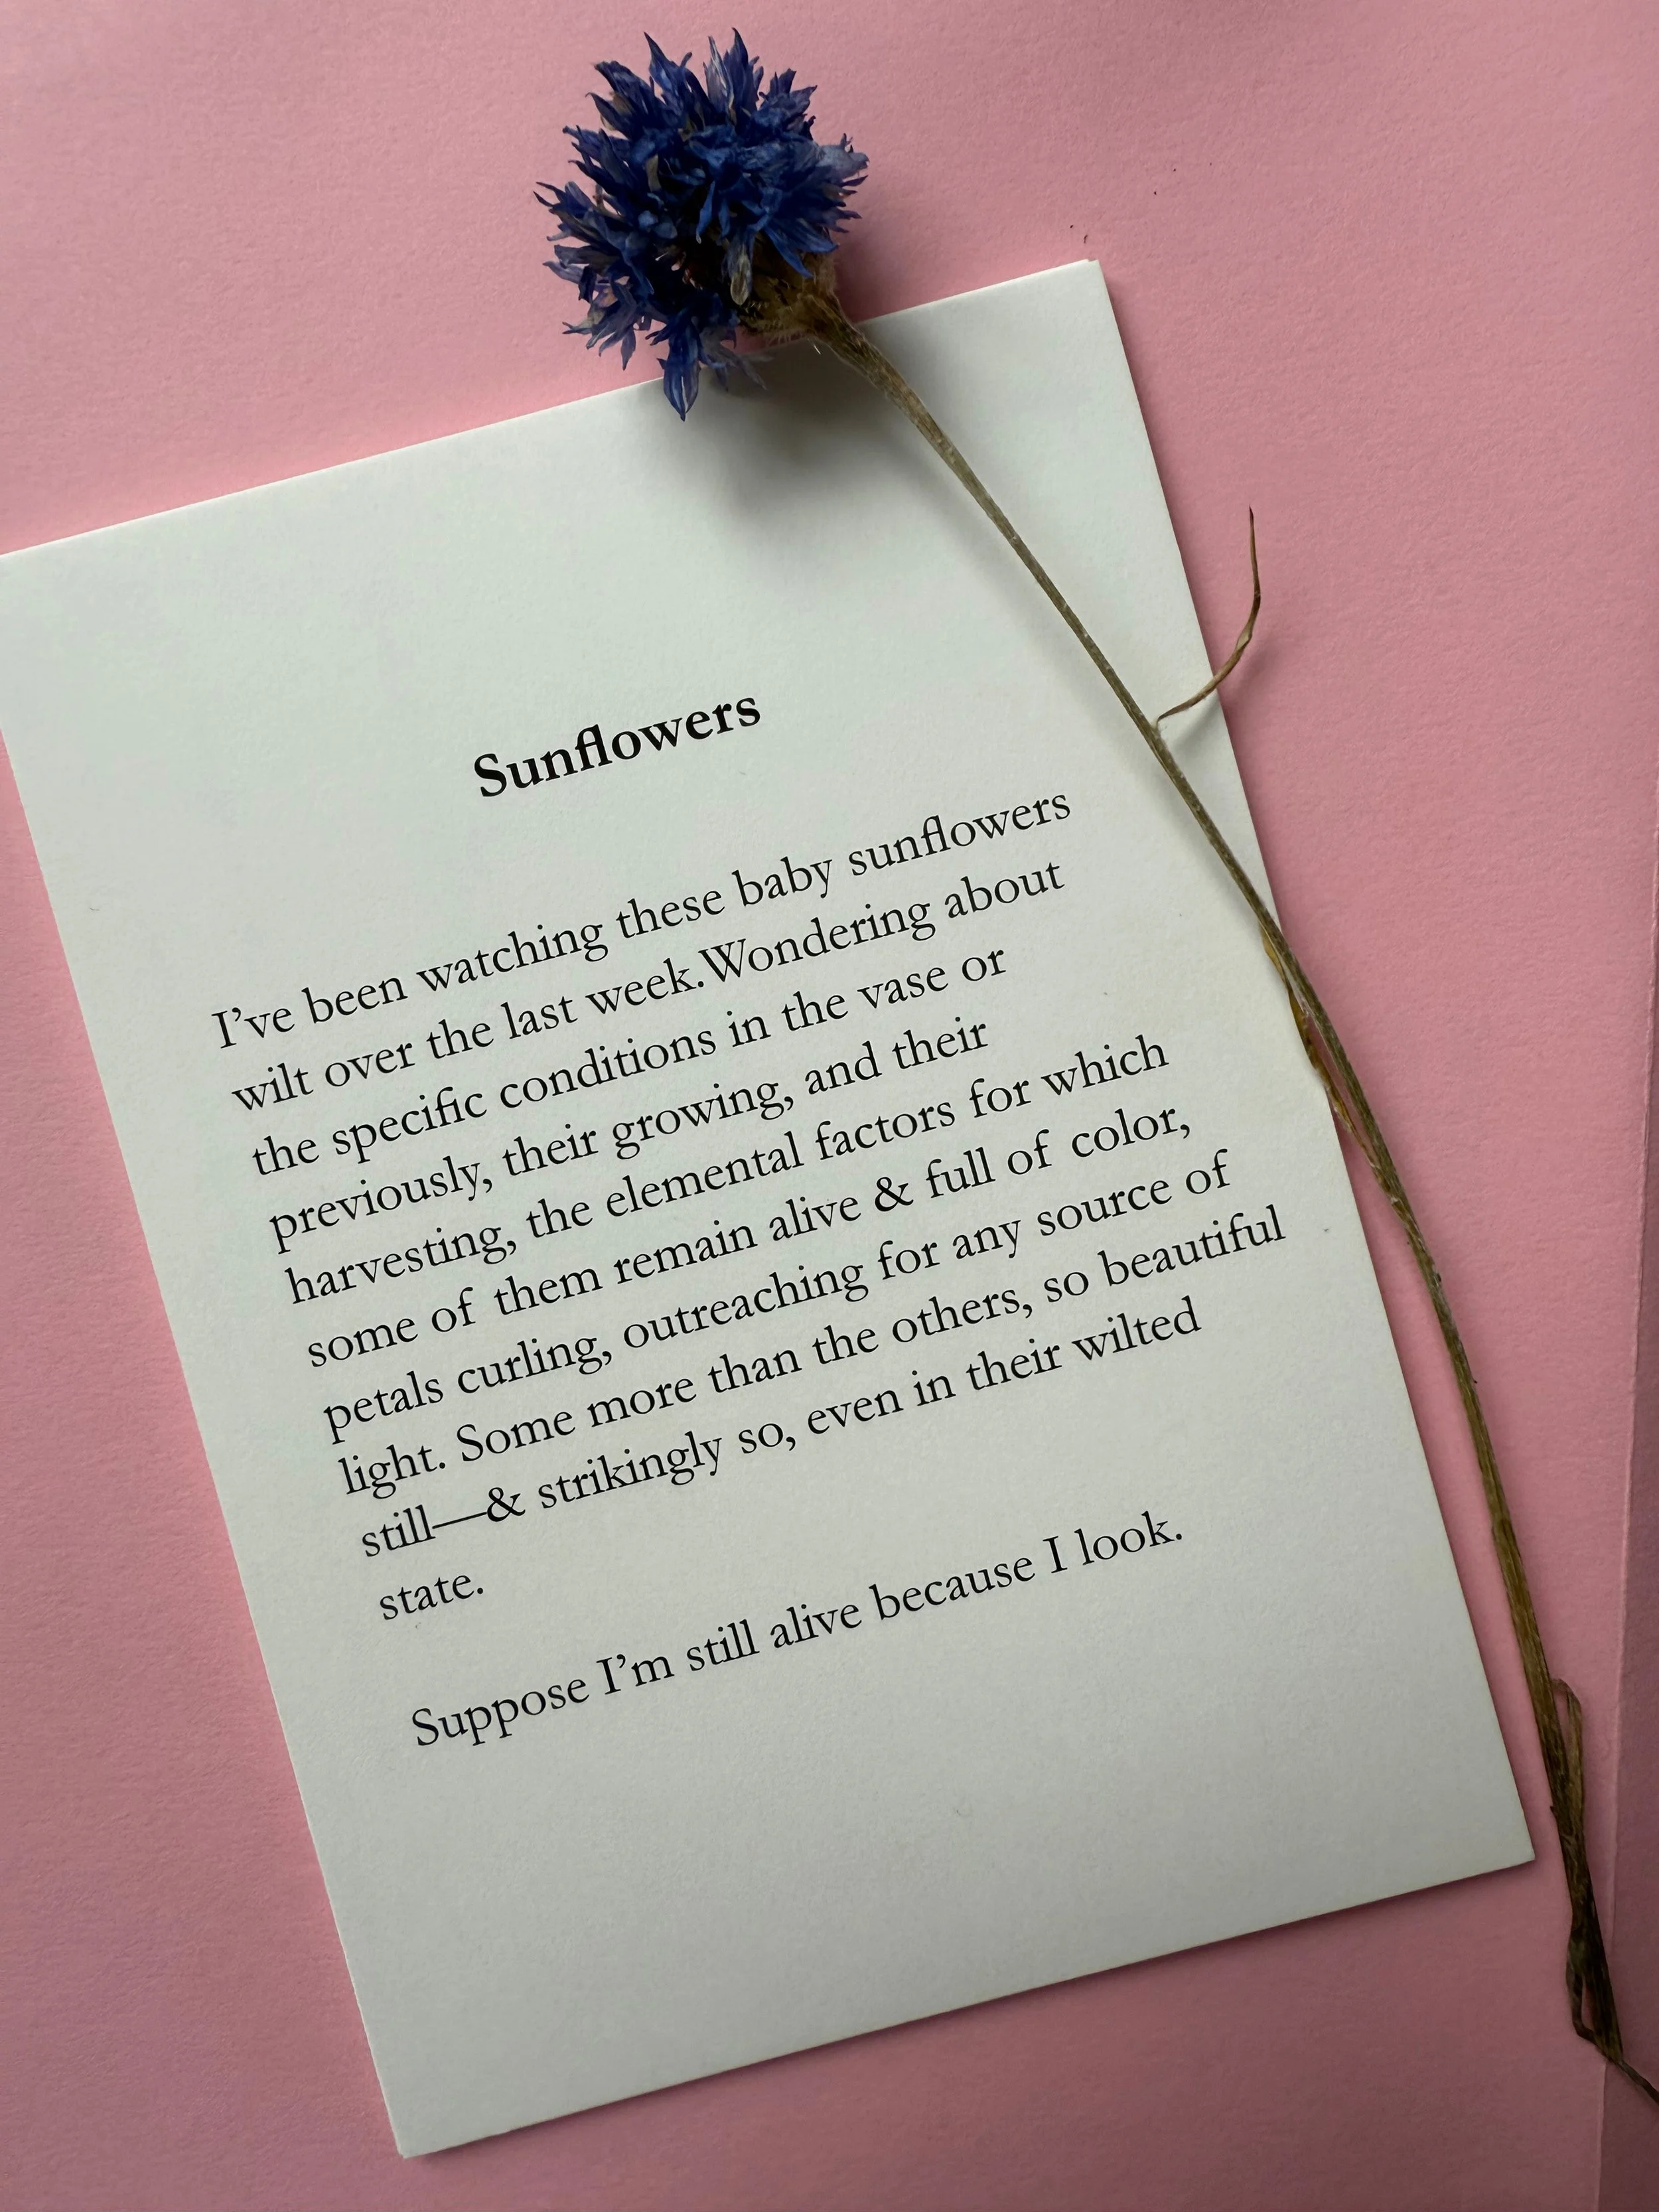 Sunflowers
I’ve been watching these baby sunflowers
wilt over the last week. Wondering about
the specific conditions in the vase or
previously, their growing, and their
harvesting, the elemental factors for which
some of them remain alive & full of color,
petals curling, outreaching for any source of
light. Some more than the others, so beautiful
still—& strikingly so, even in their wilted
state.
Suppose I’m still alive because I look.